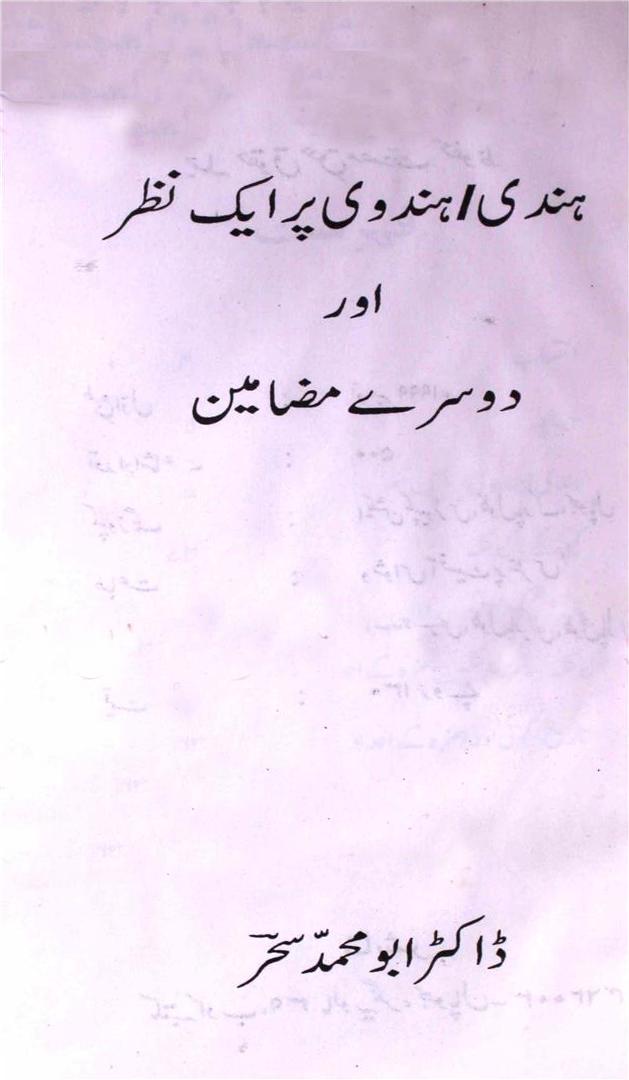 ہندی/ہندوی پر ایک نظر
اور
دوسرے مضامین
ڈاکٹر ابو محمّد سحرؔ